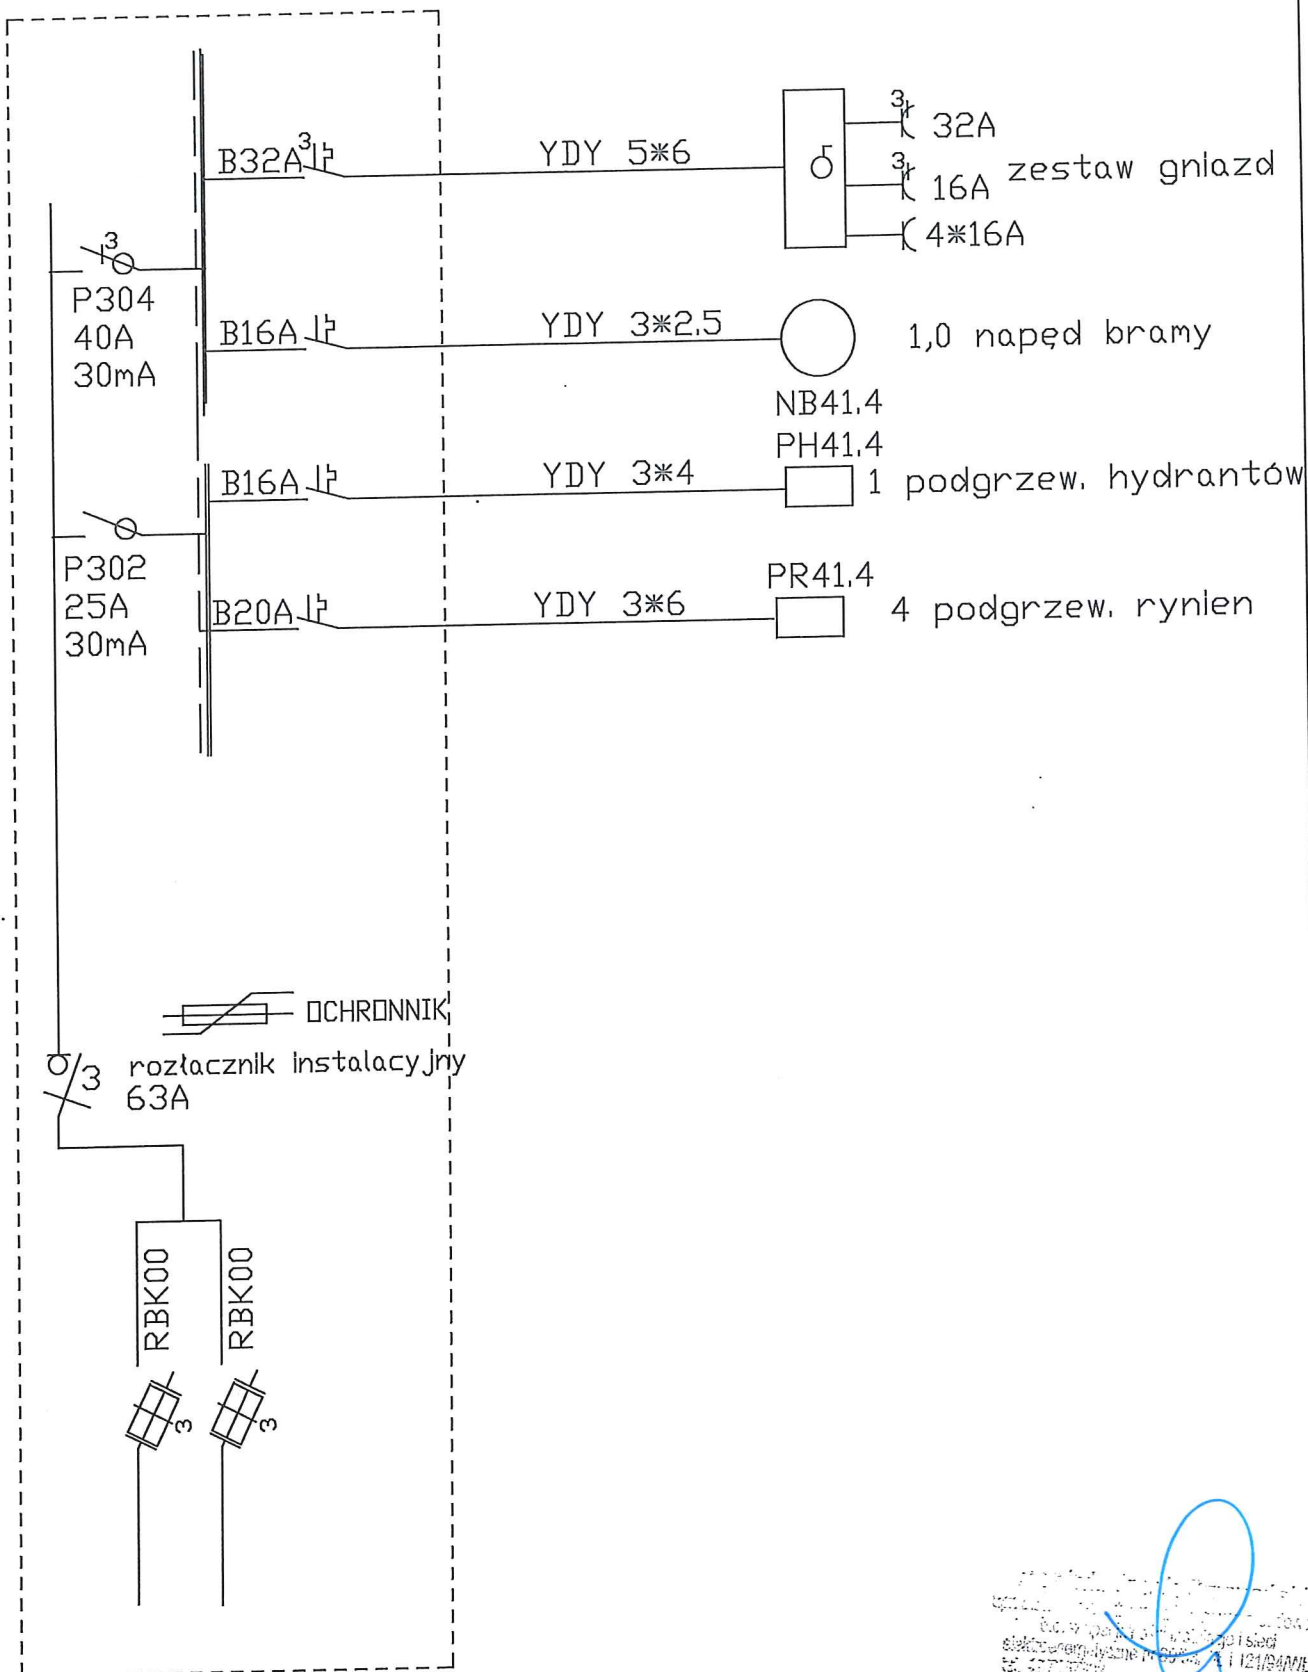 3 32A
B32A 3 YDY 5*6
3 16A zestaw gniazd
4*16A
3
P304
40A
30mA
B16A YDY 3*2.5 1,0 napęd bramy
NB41.4
PH41.4
B16A YDY 3*4 1 podgrzew. hydrantów
P302
25A
30mA
PR41.4
B20A YDY 3*6 4 podgrzew. rynien
OCHRONNIK
3 rozłacznik instalacyjny
63A
RBK00 RBK00
3 3